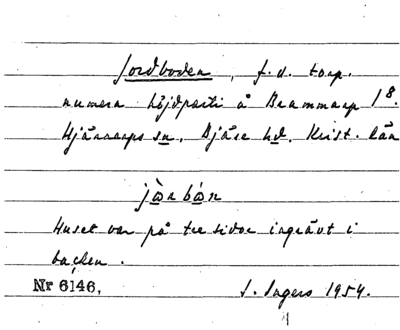 Jordboden, f.d. torp.
numera höjdparti å Brammarp 1⁸.
Hjärnarps sn, Bjäre hd. Krist. län
jo̱ɑnbo̱ɑn
Huset var på tre sidor ingrävt i
backen.
Nr 6146, I. Ingers 1954.